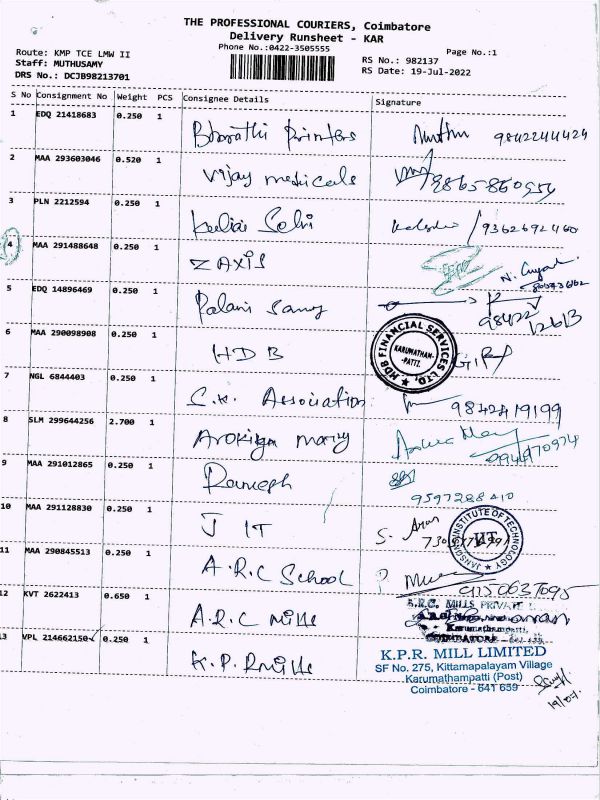 THE PROFESSIONAL COURIERS, Coimbatore
Delivery Runsheet - KAR
Phone No.:0422-3505555
Page No.:1
Route: KMP TCE LMW II
Staff: MUTHUSAMY
DRS No.: DCJB98213701
RS No.: 982137
RS Date: 19-Jul-2022
S No Consignment No Weight PCS Consignee Details Signature
1 EDQ 21418683 0.250 1 Bharathi Printers 9842244424
2 MAA 293603046 0.520 1 Vijay medicals
3 PLN 2212594 0.250 1 Selvi 9362692460
4 MAA 291488648 0.250 1 ZAXIS
5 EDQ 14896469 0.250 1 Palani Samy 98422 12613
6 MAA 290098908 0.250 1 HDB
HDB FINANCIAL SERVICES LTD.
KARUMATHAM-
PATTI.
7 NGL 6844403 0.250 1 S.K. Association 9842419199
8 SLM 299644256 2.700 1 Arokiya mary
9 MAA 291012865 0.250 1 Ramesh 9597288410
10 MAA 291128830 0.250 1 J IT S. Arun
INSTITUTE OF TECHNOLOGY
JIT
11 MAA 290845513 0.250 1 A.R.C School 9150637095
12 KVT 2622413 0.650 1 A.R.C mills
A.R.C. MILLS PRIVATE
Karumathampatti,
COIMBATORE
13 VPL 214662150 0.250 1 K.P.R mills
K.P.R. MILL LIMITED
SF No. 275, Kittamapalayam Village
Karumathampatti (Post)
Coimbatore - 641 659
19/07.